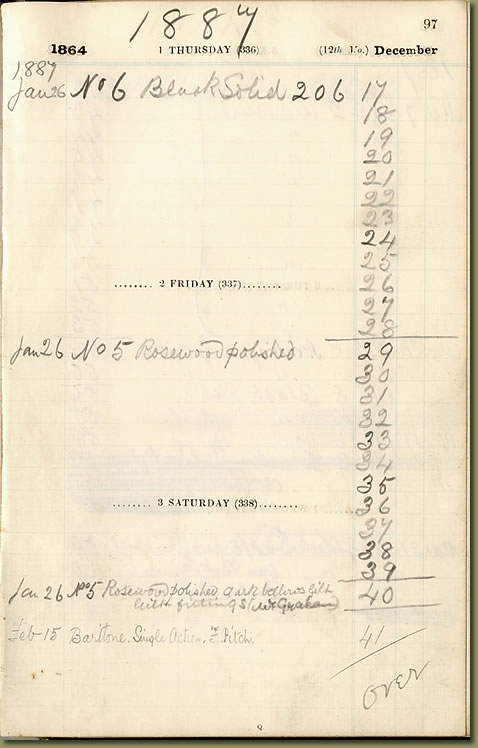 1887
97
1864 1 THURSDAY (336) (12th Mo.) December
1887
Jan 26 No 6 Black Solid 206 17
18
19
20
21
22
23
24
25
2 FRIDAY (337) 26
27
28
Jan 26 No 5 Rosewood polished 29
30
31
32
33
34
35
3 SATURDAY (338) 36
37
38
39
Jan 26 No 5 Rosewood polished dark bellows gilt 40
gilt fittings (Mr Graham)
Feb 15 Baritone. Single Action. F. Pitch. 41
over
Q